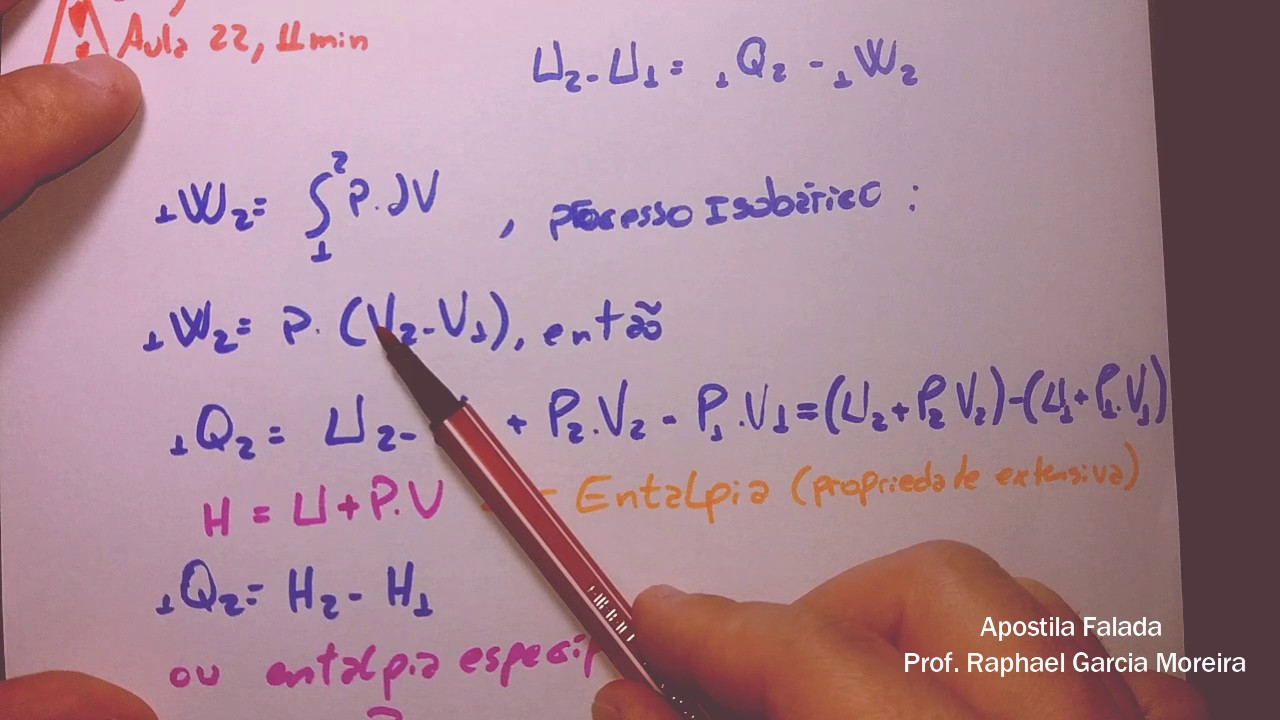 Aula 22, 11min
U₂-U₁= ₁Q₂ - ₁W₂
₁W₂= ∫₁² P.dV , processo Isobárico:
₁W₂= P.(V₂-V₁), então
₁Q₂= U₂- + P₂.V₂ - P₁.V₁=(U₂+P₂V₂)-(U₁+P₁.V₁)
H = U+P.V - Entalpia (propriedade extensiva)
₁Q₂= H₂- H₁
ou entalpia
Apostila Falada
Prof. Raphael Garcia Moreira